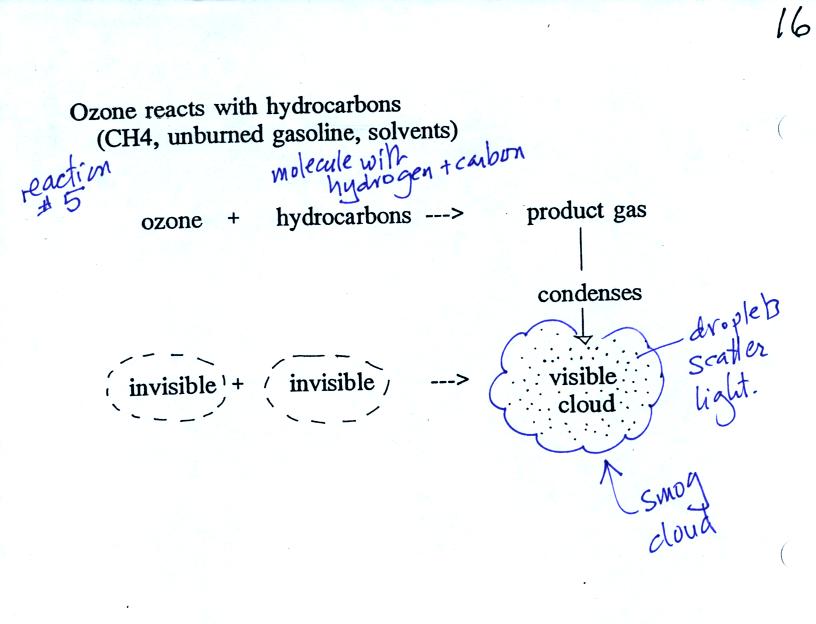 16
Ozone reacts with hydrocarbons
(CH4, unburned gasoline, solvents)
reaction
# 5
molecule with
hydrogen + carbon
ozone + hydrocarbons ---> product gas
condenses
invisible + invisible ---> visible
cloud
droplets
scatter
light.
smog
cloud